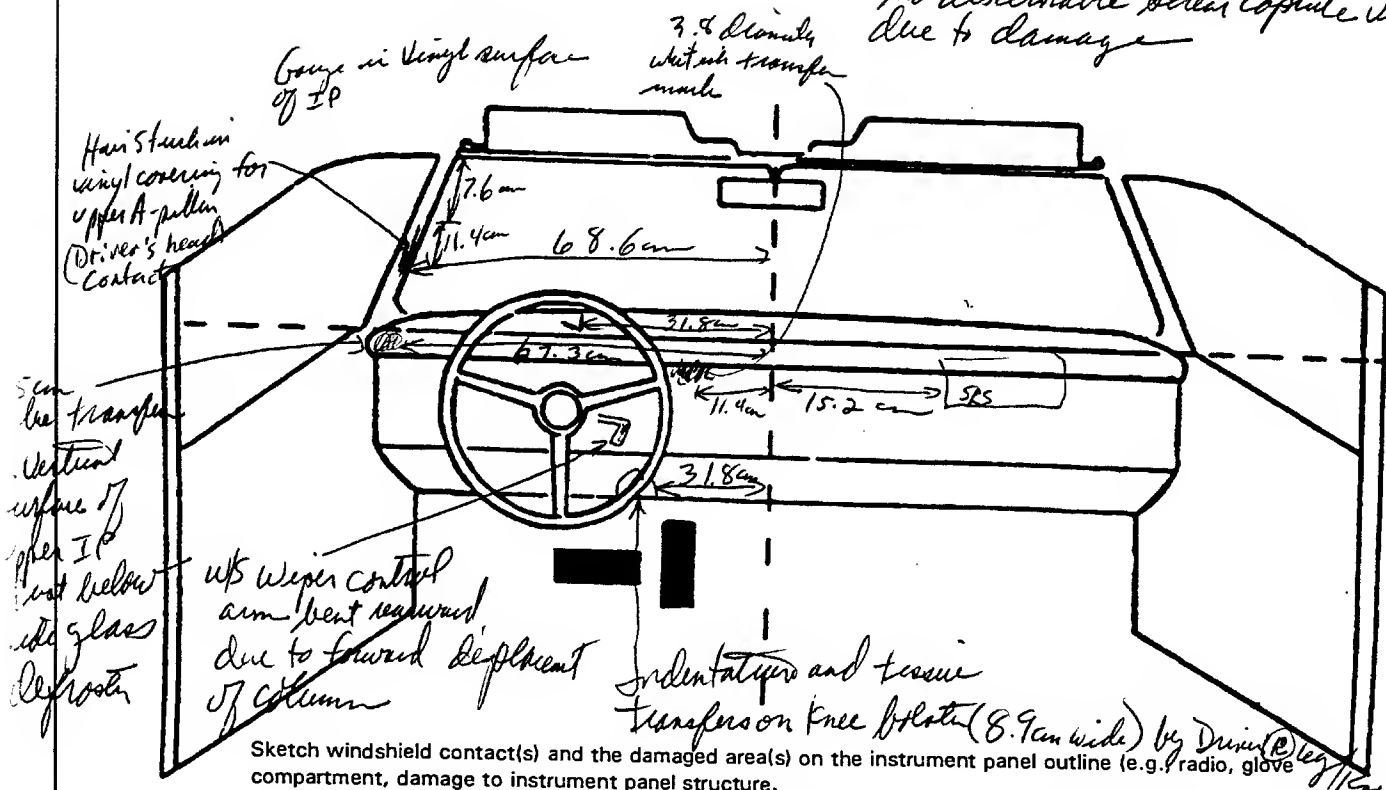 due to damage
Gouge in Vinyl surface
of IP
3.8 Diamity
whitish transfer
mark
Hair Stuck in
vinyl covering for
upper A-pillar
(Driver's head
Contact
7.6 cm
11.4cm
68.6cm
31.8cm
67.3cm
11.4cm
15.2 cm
SRS
31.8cm
5cm
transfer
Vertical
of
IP
below
glass
Defroster
w/s Wiper control
arm bent rearward
due to forward displacent
of column
Indentation and tissue
transfers on Knee bolster (8.9cm wide) by Driver (R) leg/
Sketch windshield contact(s) and the damaged area(s) on the instrument panel outline (e.g., radio, glove
compartment, damage to instrument panel structure.